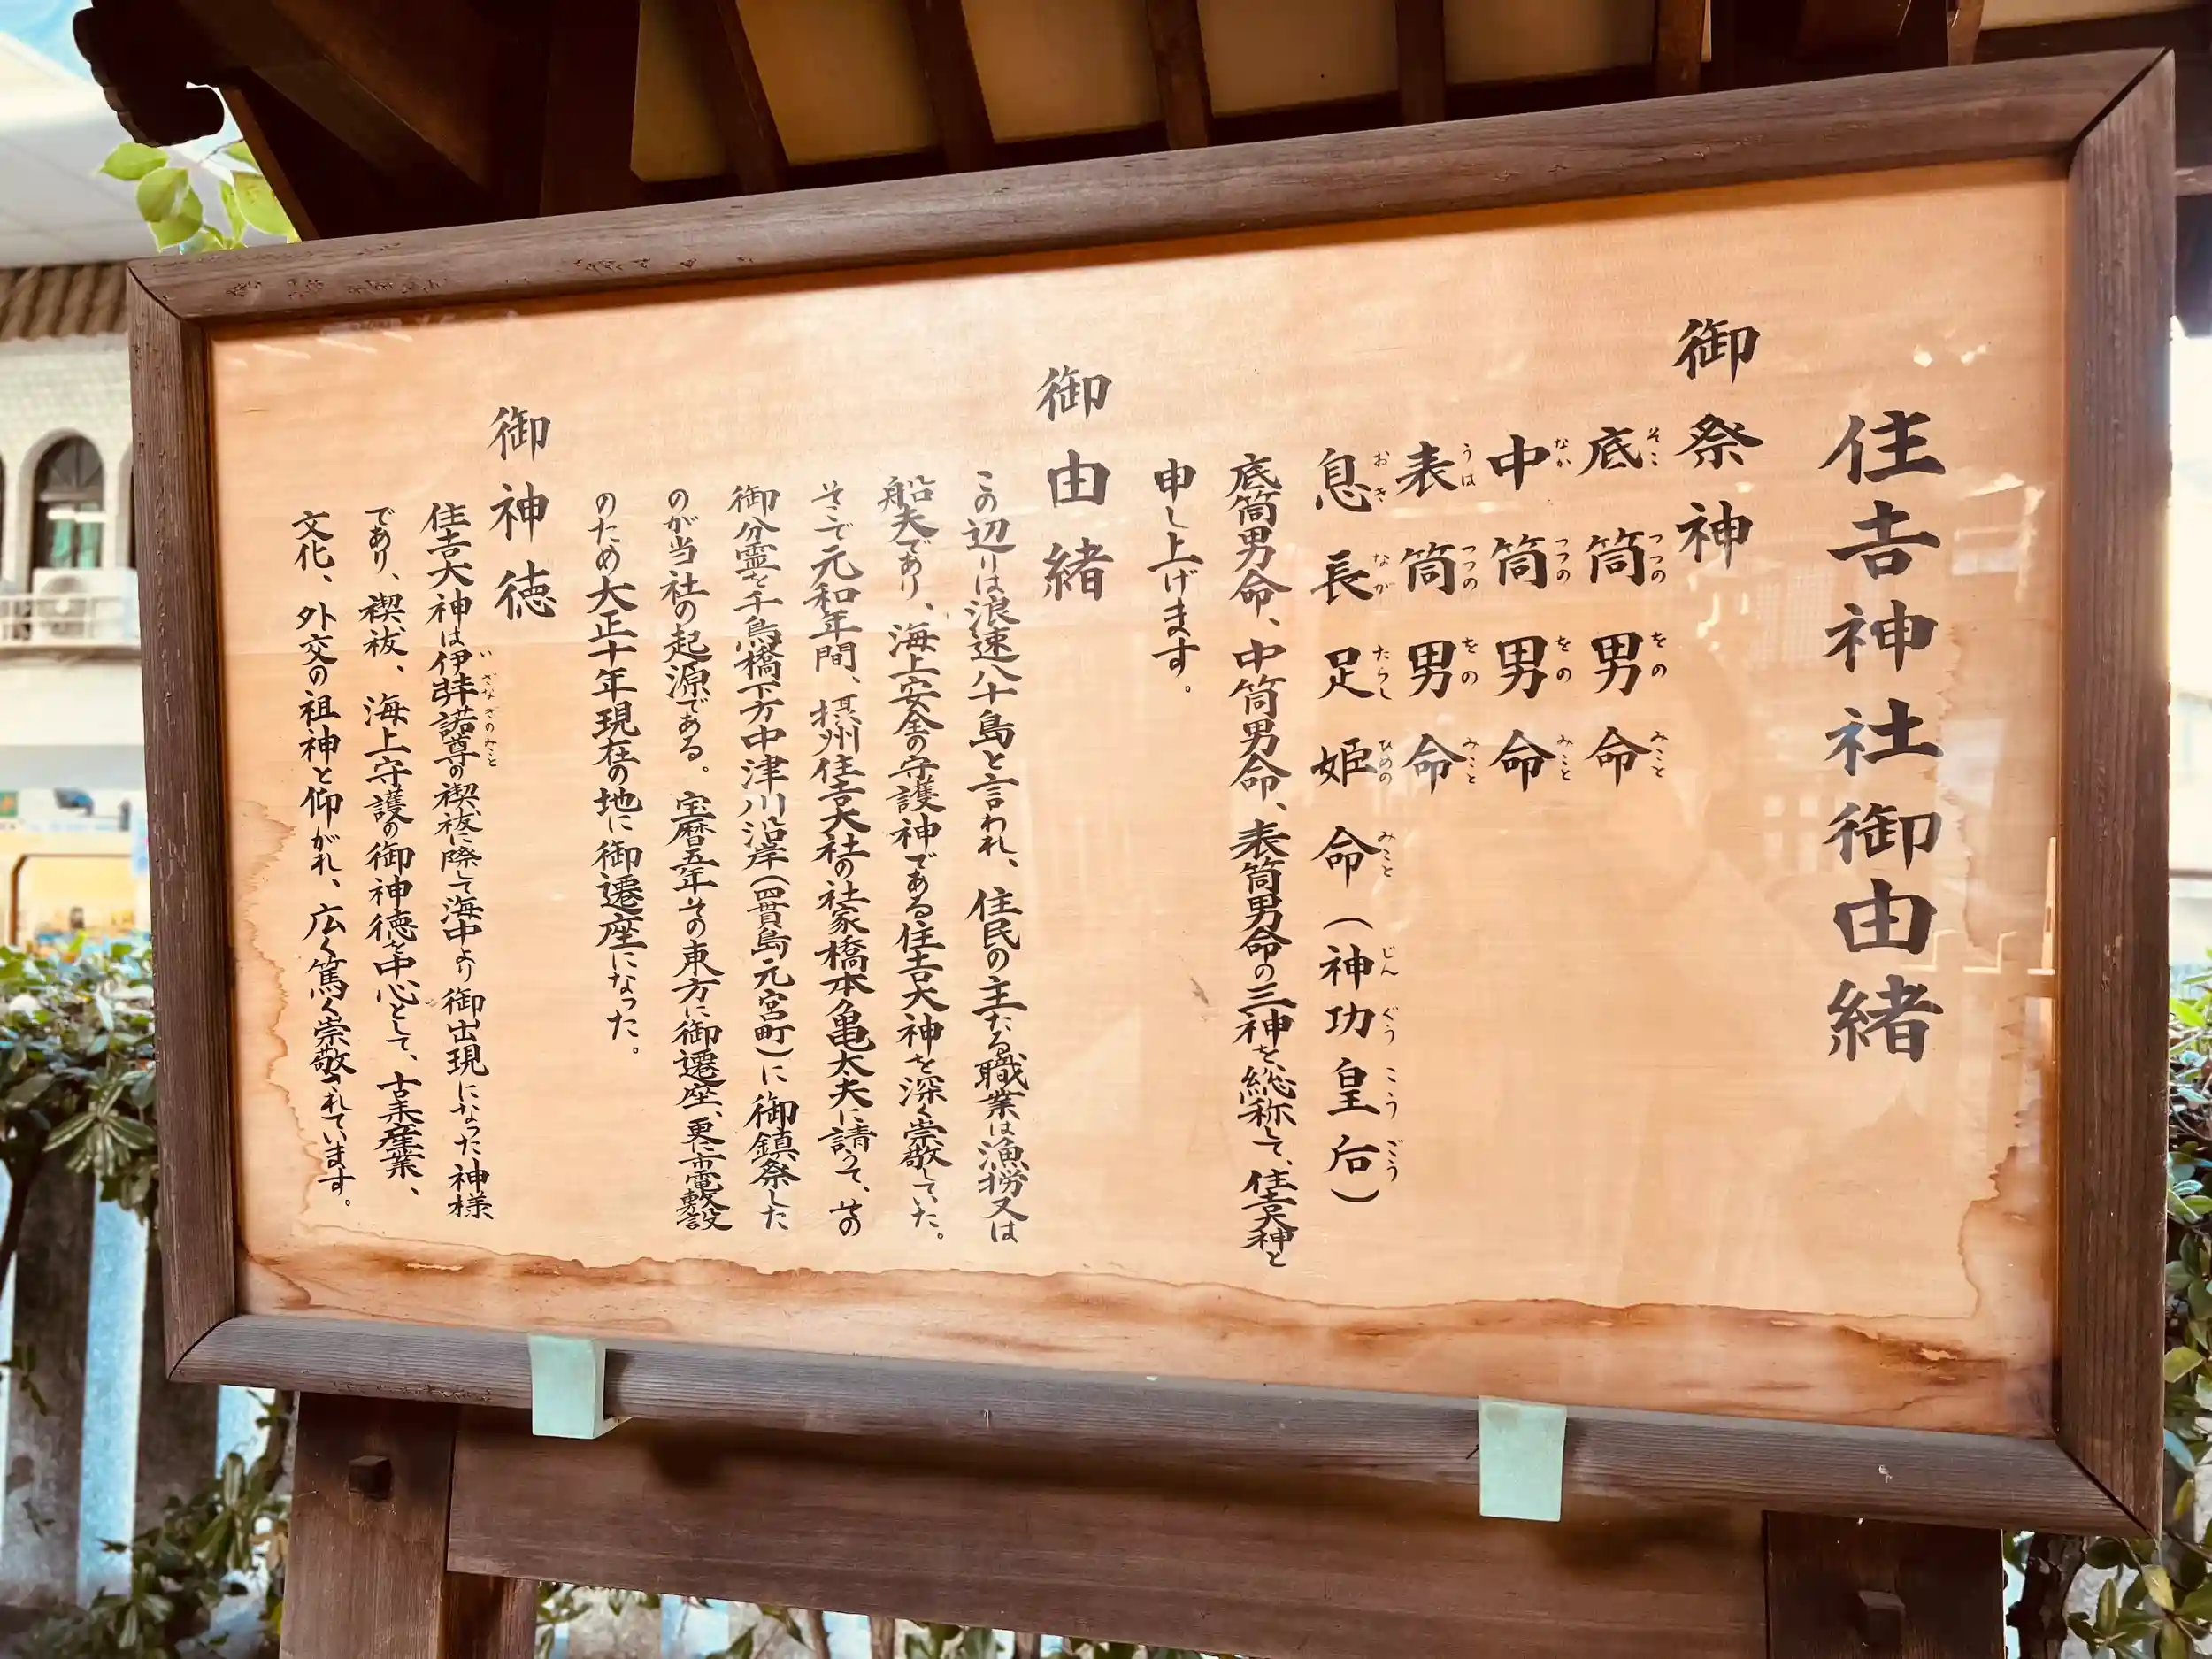 住吉神社御由緒
御祭神
底筒男命
中筒男命
表筒男命
息長足姫命(神功皇后)
底筒男命、中筒男命、表筒男命の三神を総称して、住吉大神と
申し上げます。
御由緒
この辺りは浪速八十島と言われ、住民の主たる職業は漁撈又は
船夫であり、海上安全の守護神である住吉大神を深く崇敬していた。
そこで元和年間、摂州住吉大社の社家橋本亀太夫に請うて、其の
御分霊を千鳥橋下方中津川沿岸(四貫島元宮町)に御鎮祭した
のが当社の起源である。宝暦五年その東方に御遷座、更に市電敷設
のため大正十年現在の地に御遷座になった。
御神徳
住吉大神は伊弉諾尊の禊祓に際して海中より御出現になった神様
であり、禊祓、海上守護の御神徳を中心として、古来産業、
文化、外交の祖神と仰がれ、広く篤く崇敬されています。